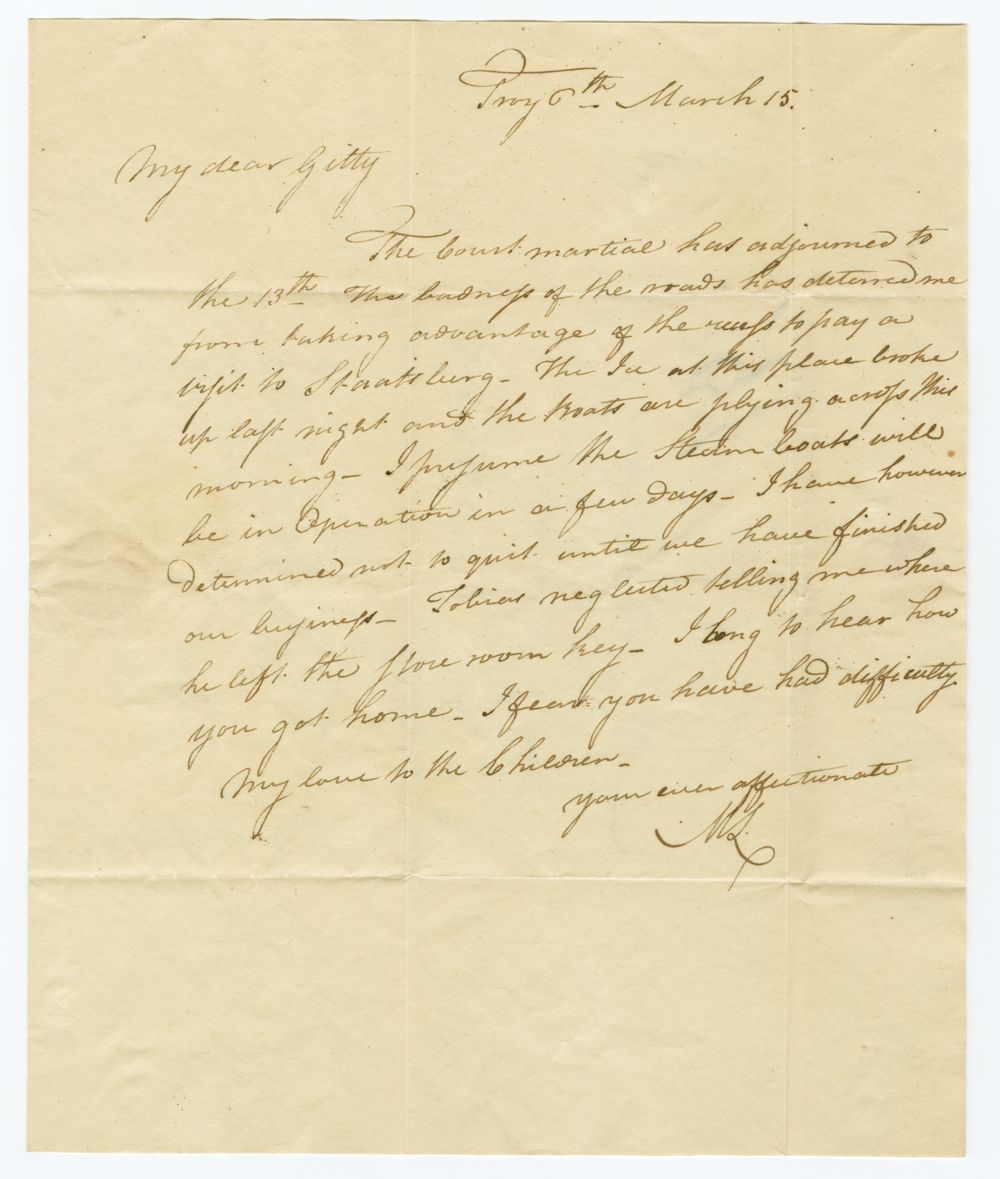 Troy 6th March 15.
My dear Gitty
The Court martial has adjourned to
the 13th The badness of the roads has deterred me
from taking advantage of the recess to pay a
visit to Staatsburg - The Ice at this place broke
up last night and the Boats are plying across this
morning - I presume the Steam boats will
be in Operation in a few days - I have however
determined not to quit until we have finished
our business - Tobias neglected telling me where
he left the Store room key - I long to hear how
you got home - I fear you have had difficulty
My love to the Children -
your ever affectionate
ML